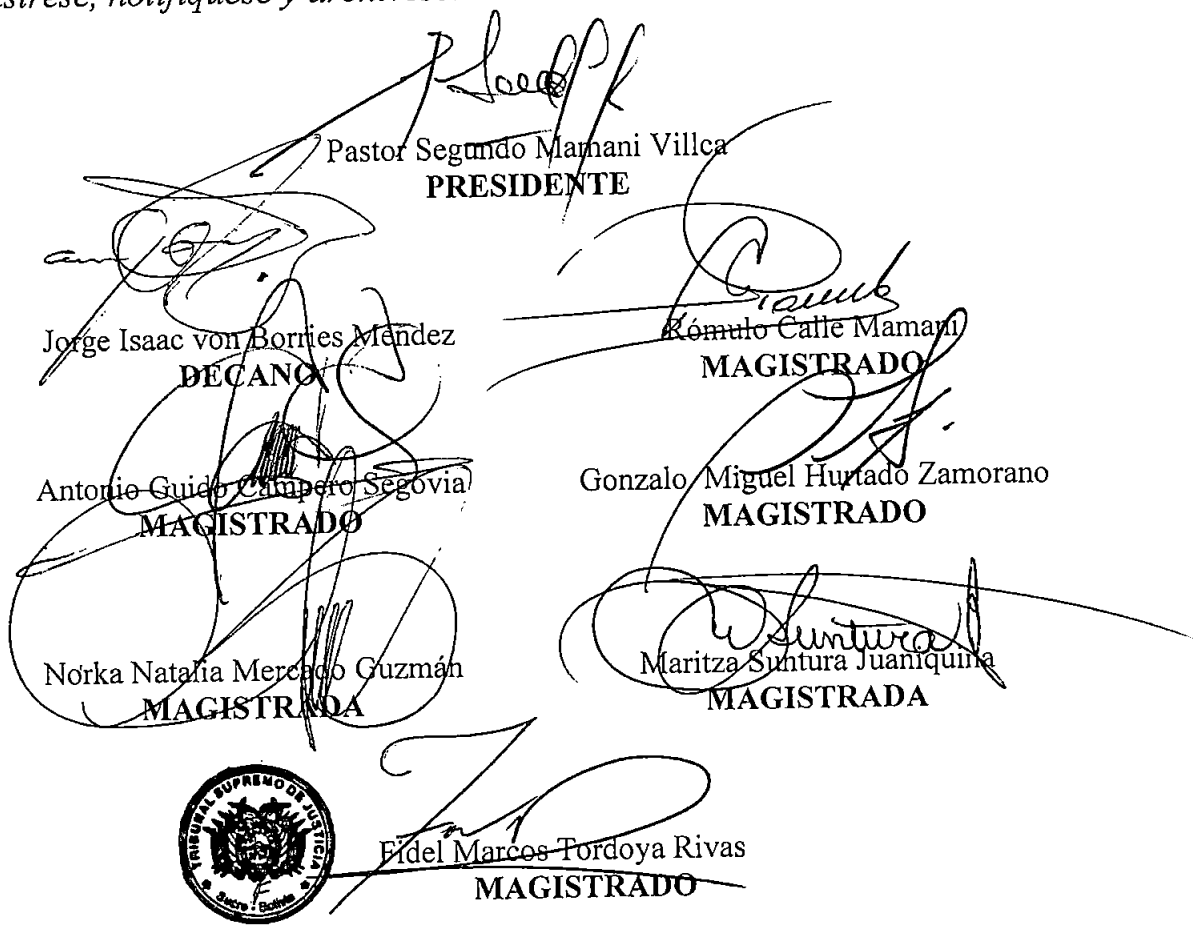 notifíquese y
Pastor Segundo Mamani Villca
PRESIDENTE
Jorge Isaac von Borries Méndez
DECANO
Rómulo Calle Mamani
MAGISTRADO
Antonio Guido Campero Segovia
MAGISTRADO
Gonzalo Miguel Hurtado Zamorano
MAGISTRADO
Suntura
Norka Natalia Mercado Guzmán
MAGISTRADA
Maritza Suntura Juaniquina
MAGISTRADA
TRIBUNAL SUPREMO DE JUSTICIA
Sucre - Bolivia
Fidel Marcos Tordoya Rivas
MAGISTRADO